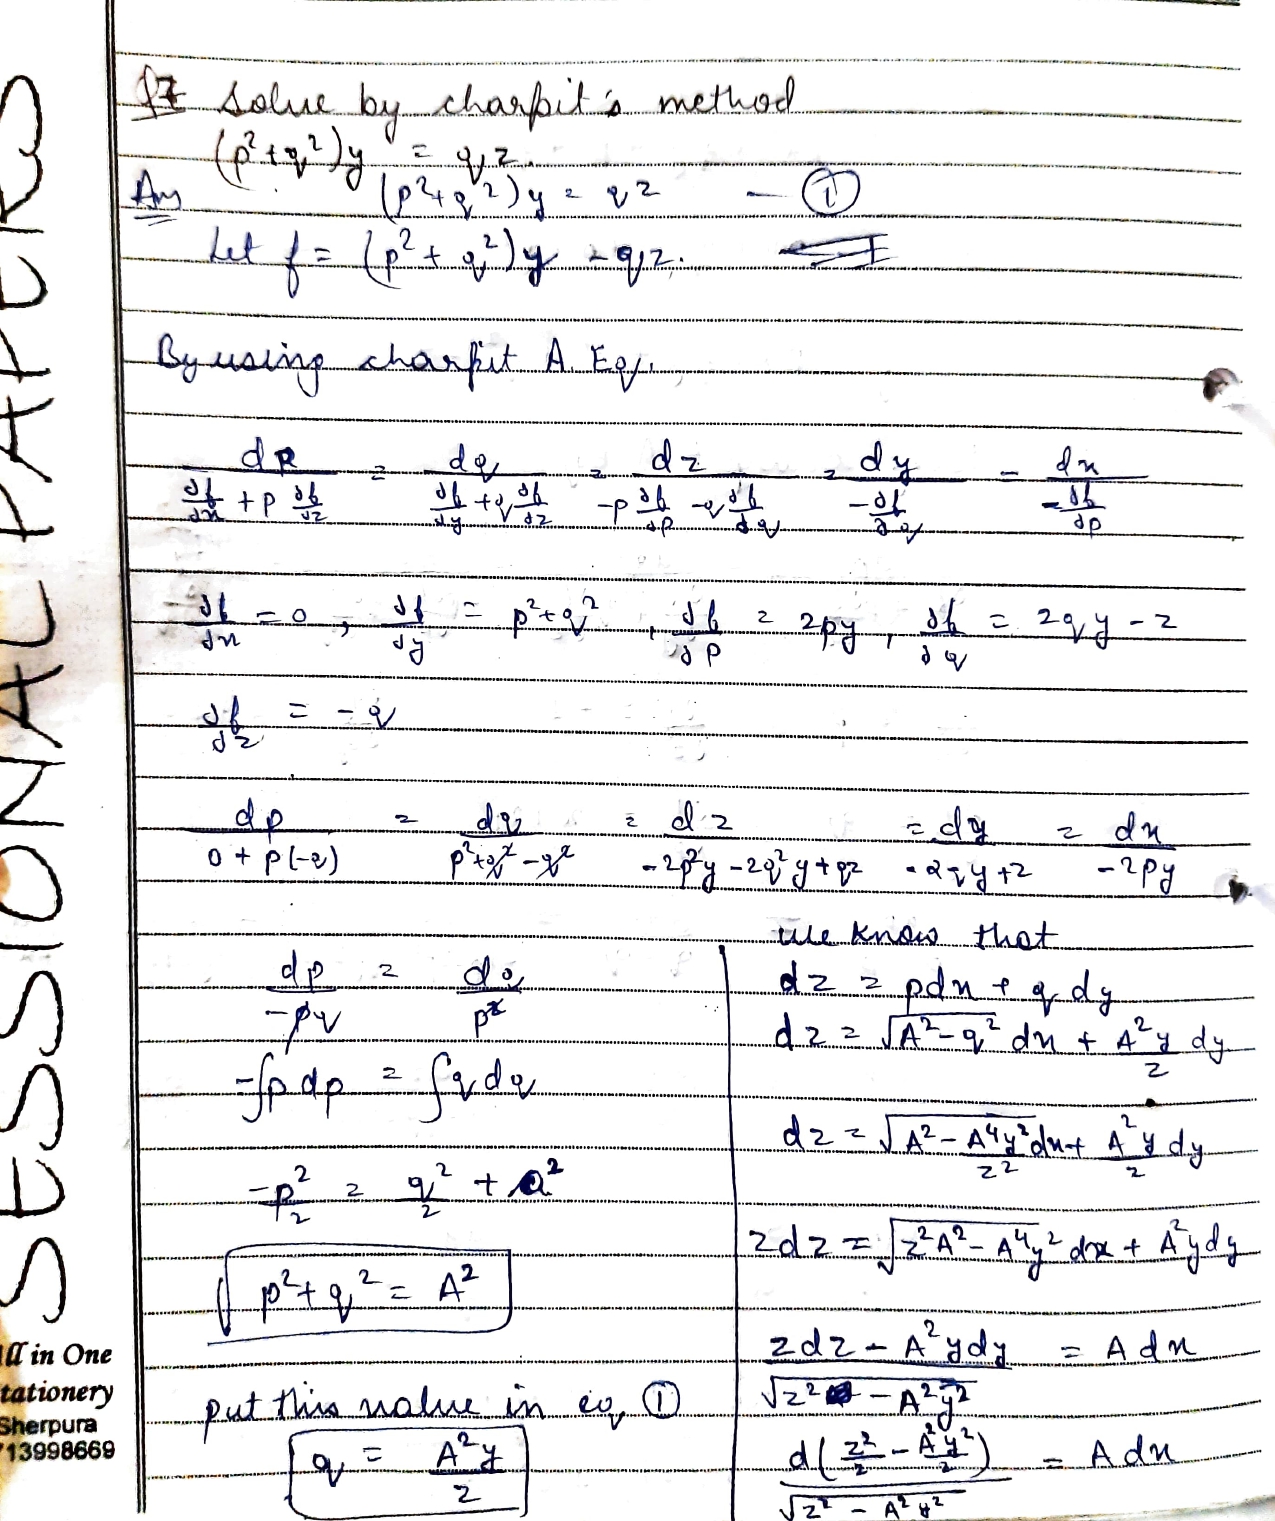 Q7 Solve by charpit's method
(p²+q²)y = qz.
Ans (p²+q²)y = qz — ①
Let f = (p² + q²)y - qz.
By using charpit A. Eq.
dp/(∂f/∂x + p ∂f/∂z) = dq/(∂f/∂y + q ∂f/∂z) = dz/(-p ∂f/∂p - q ∂f/∂q) = dy/(-∂f/∂q) = dx/(-∂f/∂p)
∂f/∂x = 0, ∂f/∂y = p²+q², ∂f/∂p = 2py, ∂f/∂q = 2qy - z
∂f/∂z = -q
dp/(0 + p(-q)) = dq/(p²+q²-q²) = dz/(-2p²y - 2q²y + qz) = dy/(-2qy+z) = dx/(-2py)
dp/(-pq) = dq/p²
-∫p dp = ∫q dq
-p²/2 = q²/2 + a²
p² + q² = A²
put this value in eq ①
q = A²y/z
we know that
dz = pdx + q dy
dz = √(A²-q²) dx + A²y/z dy
dz = √(A² - A⁴y²/z²) dx + A²y/z dy
zdz = √(z²A² - A⁴y²) dx + A²ydy
(zdz - A²ydy)/√(z² - A²y²) = A dx
d(z²/2 - A²y²/2)/√(z² - A²y²) = A dx
SESSIONAL PAPERS
All in One
Stationery
Sherpura
713998669